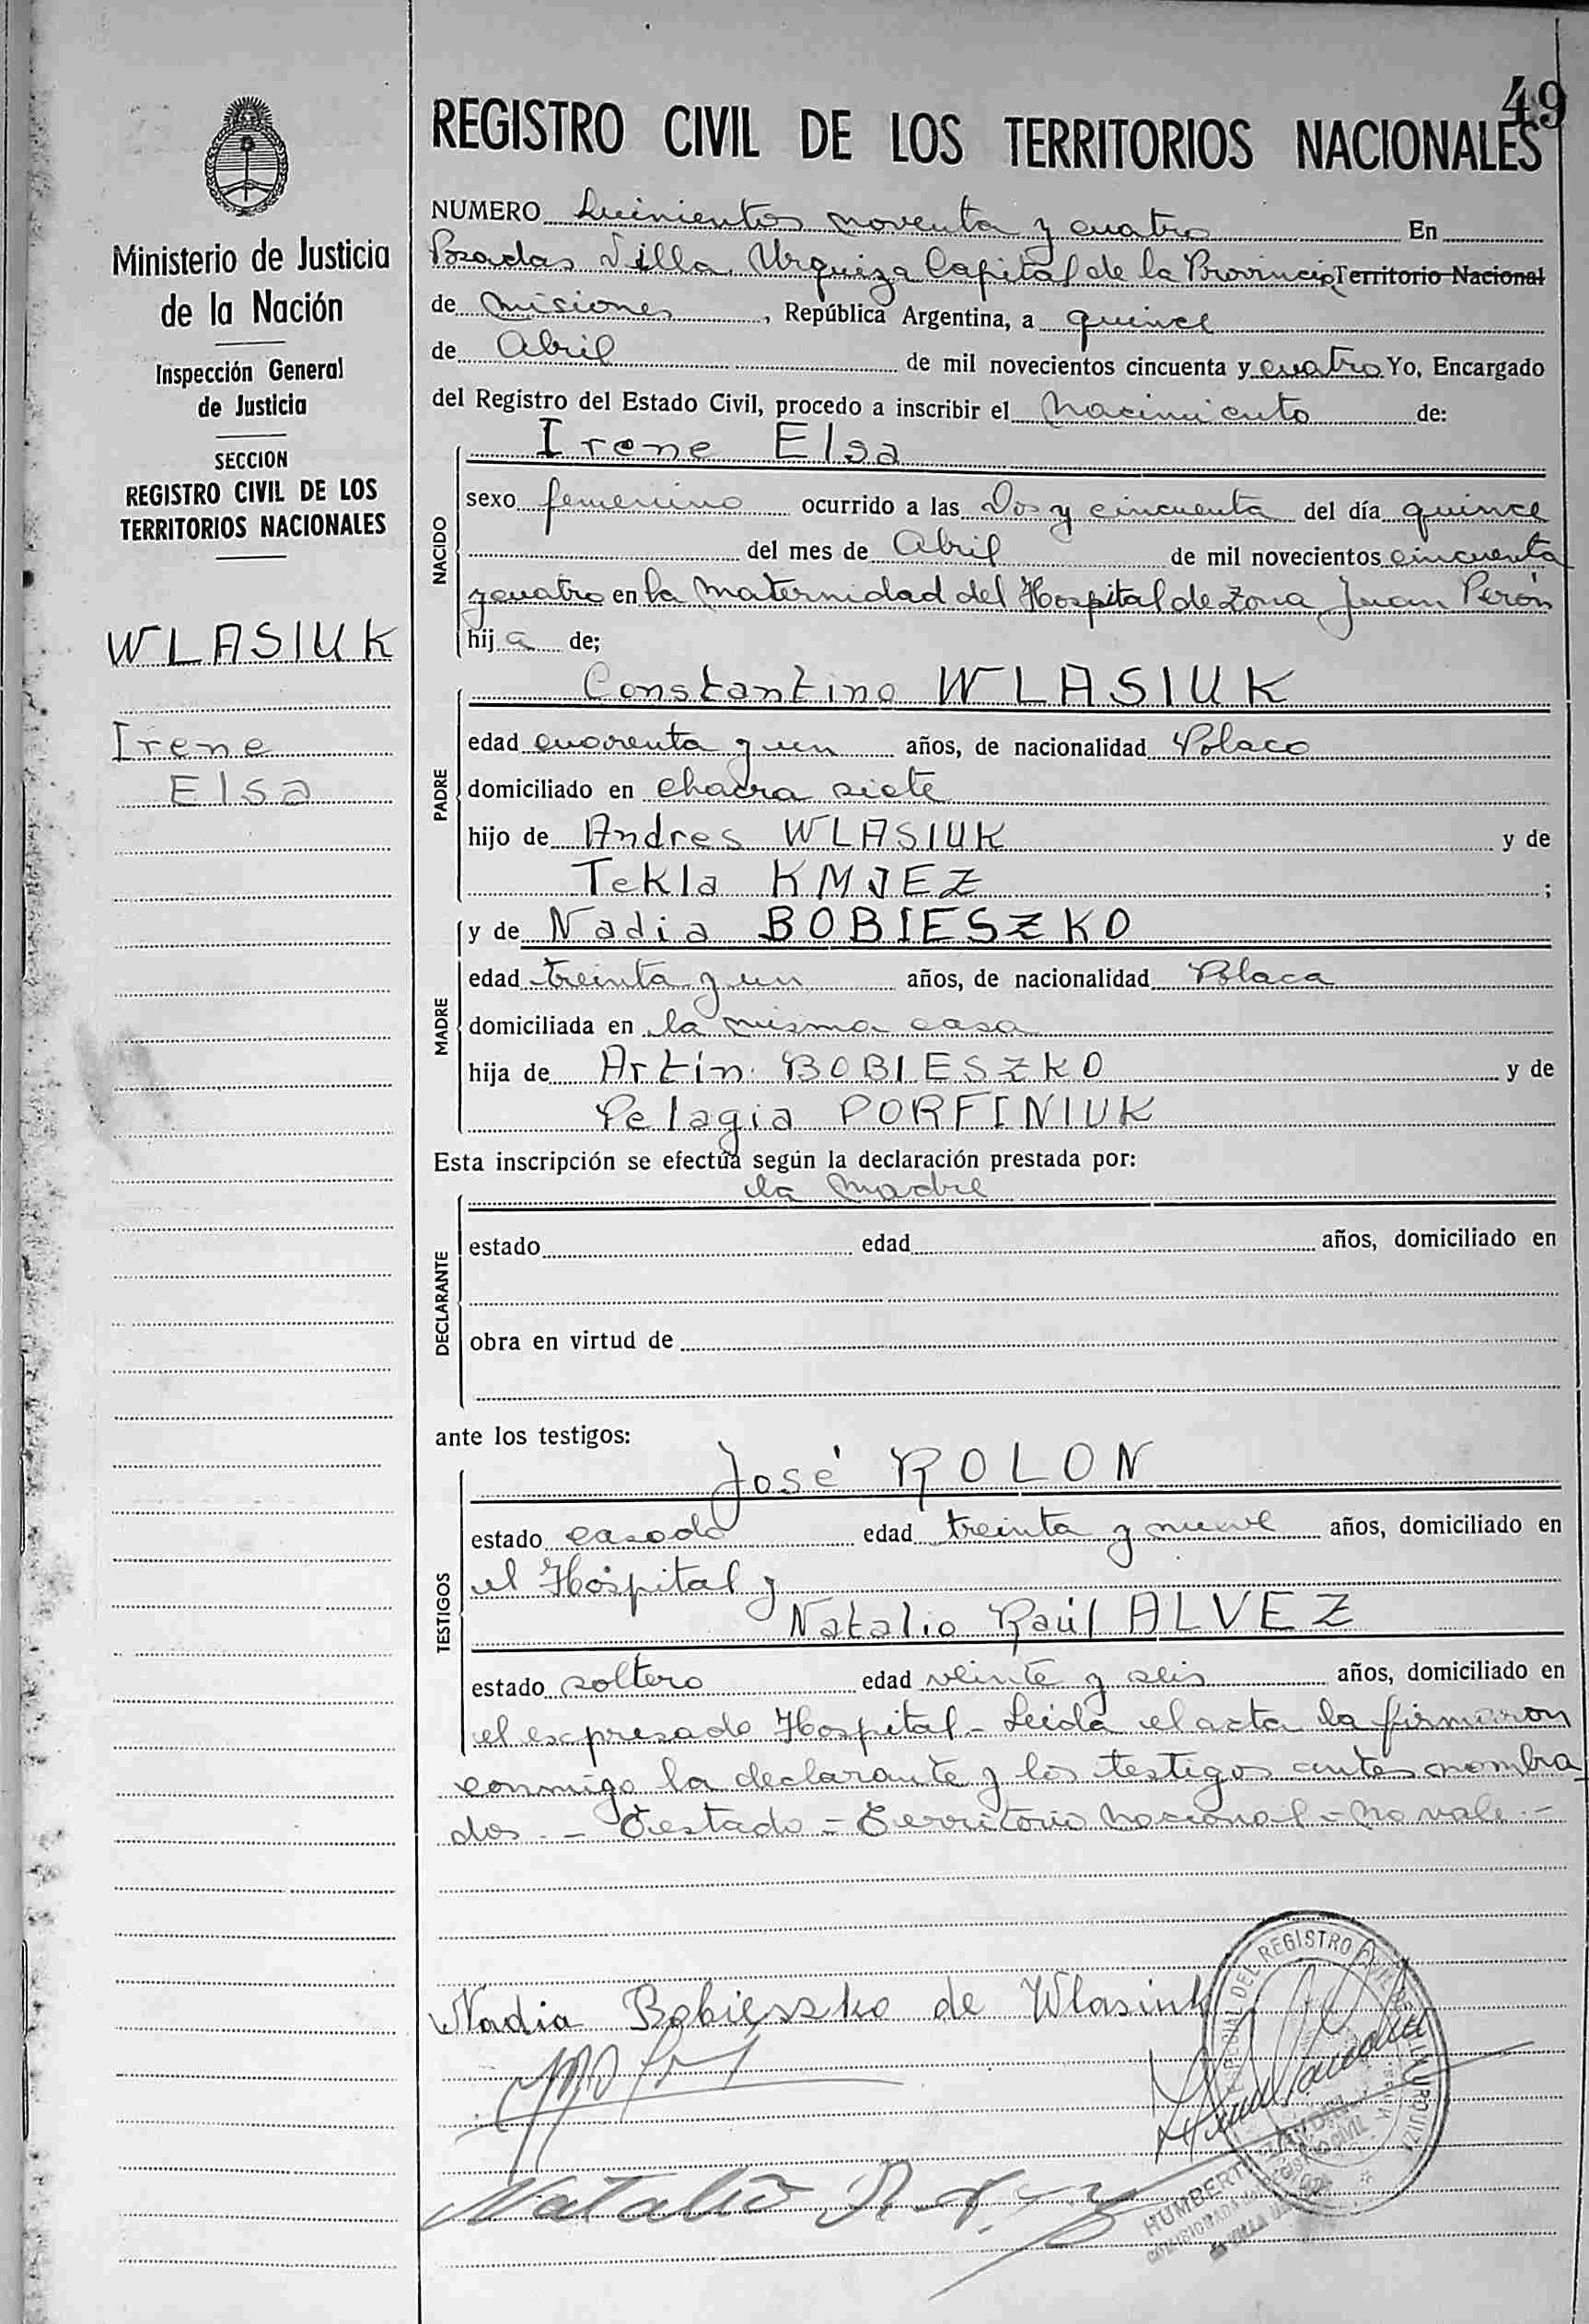 49
REGISTRO CIVIL DE LOS TERRITORIOS NACIONALES
Ministerio de Justicia
de la Nación
Inspección General
de Justicia
SECCION
REGISTRO CIVIL DE LOS
TERRITORIOS NACIONALES
WLASIUK
Irene
Elsa
NUMERO Quinientos noventa y cuatro En
Posadas Villa Urquiza Capital de la Provincia Territorio Nacional
de Misiones, República Argentina, a quince
de Abril de mil novecientos cincuenta y cuatro Yo, Encargado
del Registro del Estado Civil, procedo a inscribir el Nacimiento de:
NACIDO
Irene Elsa
sexo femenino ocurrido a las Dos y cincuenta del día quince
del mes de Abril de mil novecientos cincuenta
y cuatro en la Maternidad del Hospital de Zona Juan Perón
hij a de;
PADRE
Constantino WLASIUK
edad cuarenta y un años, de nacionalidad Polaco
domiciliado en chacra siete
hijo de Andres WLASIUK y de
Tekla KMJEZ ;
MADRE
y de Nadia BOBIESZKO
edad treinta y un años, de nacionalidad Polaca
domiciliada en la misma casa
hija de Artín BOBIESZKO y de
Pelagia PORFINIUK
Esta inscripción se efectúa según la declaración prestada por:
DECLARANTE
la Madre
estado edad años, domiciliado en
obra en virtud de
ante los testigos:
TESTIGOS
José ROLON
estado casado edad treinta y nueve años, domiciliado en
el Hospital y
Natalio Raúl ALVEZ
estado soltero edad veinte y seis años, domiciliado en
el expresado Hospital - Leída el acta la firmaron
conmigo la declarante y los testigos antes nombra
dos. - Testado - Territorio Nacional - No vale. -
Nadia Bobieszko de Wlasiuk
Natalio R.
DEL REGISTRO CIVIL
URQUIZA
HUMBERTO
REGISTRO CIVIL
VILLA